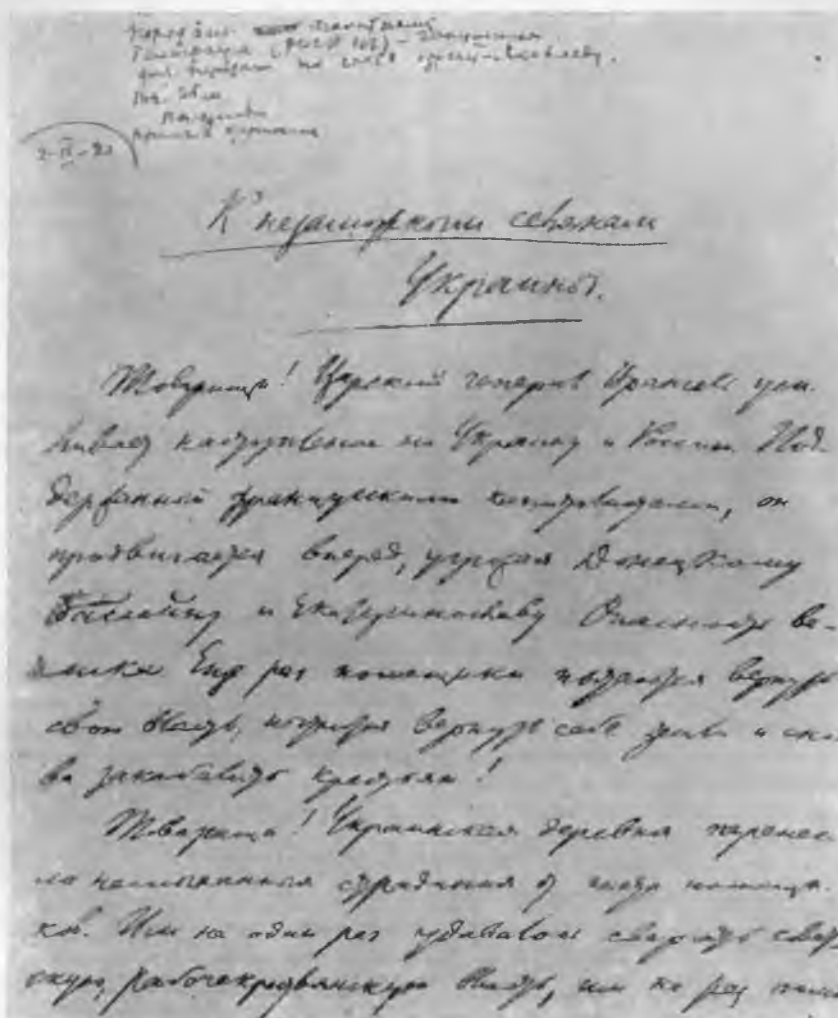 2-IX-20
К незаможным селянам
Украины.
Товарищи! Царский генерал Врангель уси-
ливает наступление на Украину и Россию. Под-
держанный французскими капиталистами, он
продвигается вперед, угрожая Донецкому
бассейну и Екатеринославу. Опасность ве-
лика. Еще раз помещики пытаются вернуть
свою власть, пытаются вернуть себе земли и сно-
ва закабалить крестьян!
Товарищи! Украинская деревня перенес-
ла неслыханные страдания от гнета помещи-
ков. Им не один раз удавалось свергать совет-
скую, рабочекрестьянскую власть, им не раз